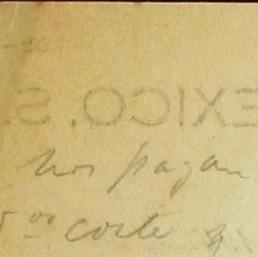 EXICO. S.
nos pagan
5⁰⁰ coste y